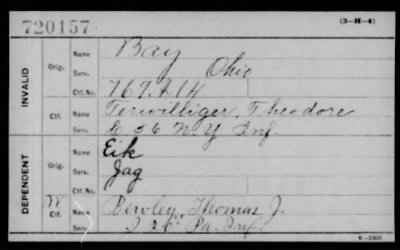 720157
(3-H-4)
INVALID
Orig.
Name
Bay
Serv.
Ohio
Ctf. No.
767.A 14
Ctf.
Name
Terwilliger, Theodore
Serv.
56 N.Y. Inf.
DEPENDENT
Orig.
Name
Eik
Serv.
Jag
Ctf. No.
W
Ctf.
Name
Bewley, Thomas J.
Serv.
26" Pa. Inf.